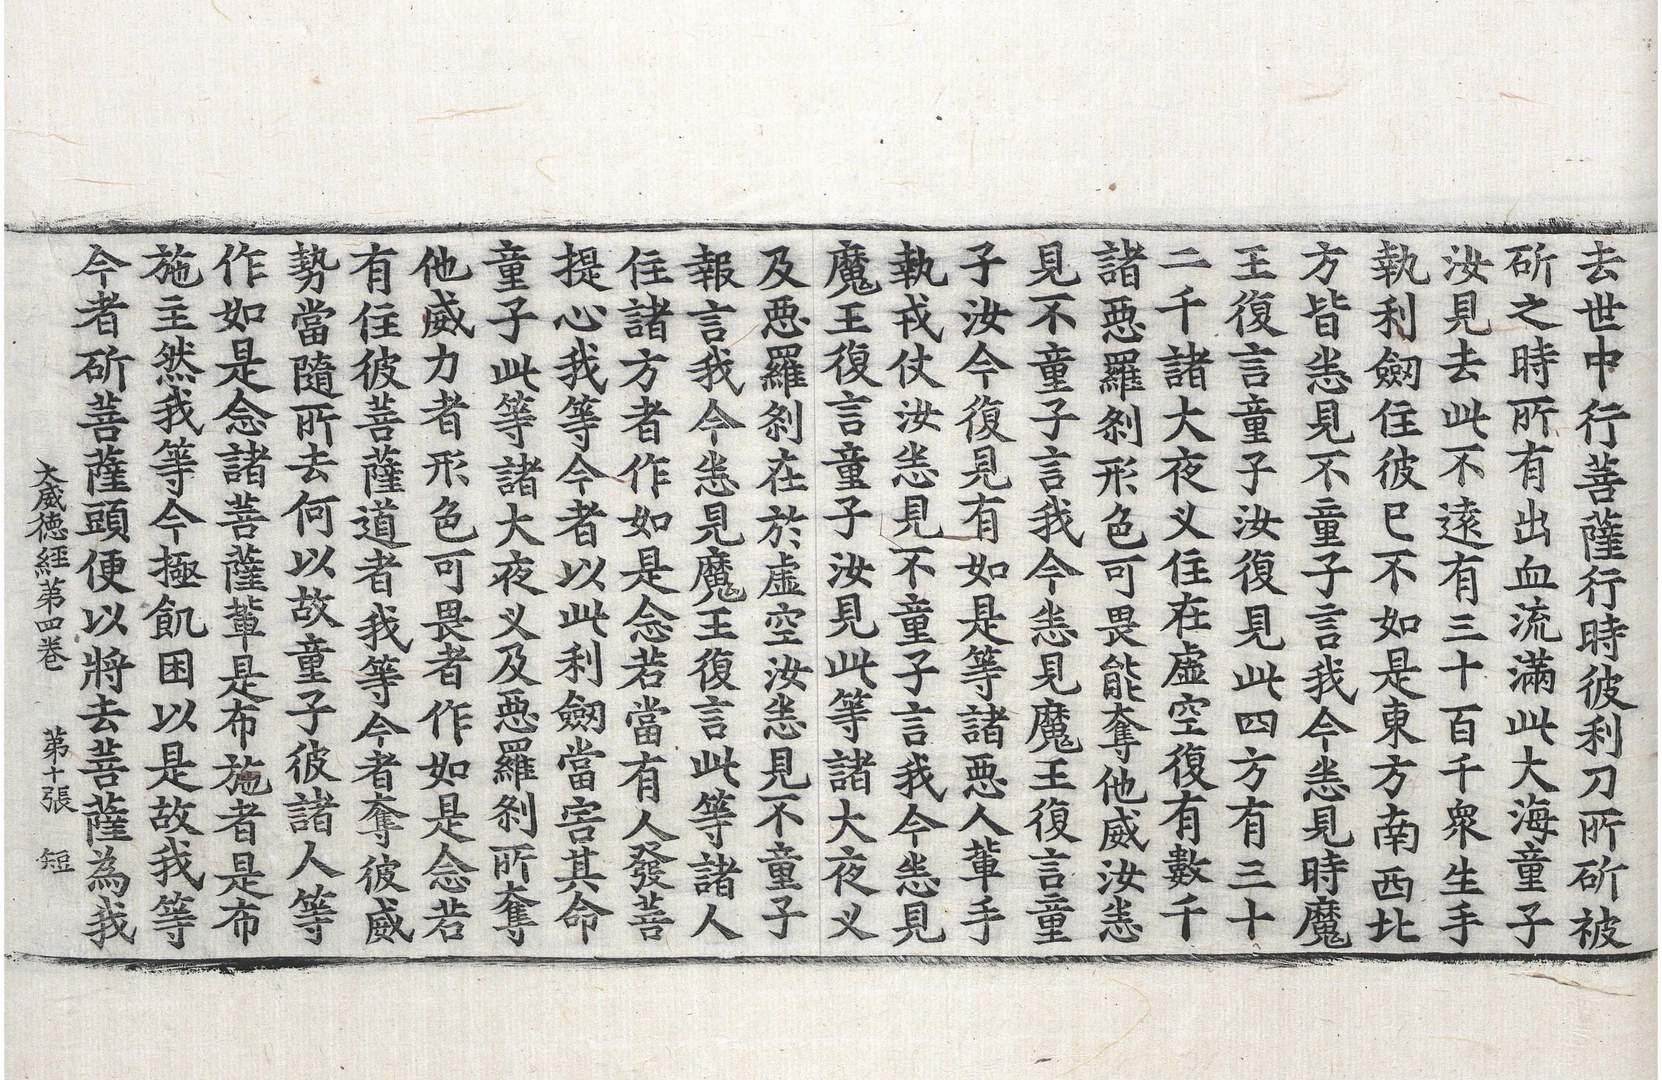 去世中行菩薩行時彼利刀所斫被
斫之時所有出血流滿此大海童子
汝見去此不遠有三十百千衆生手
執利劒住彼巳不如是東方南西北
方皆悉見不童子言我今悉見時魔
王復言童子汝復見此四方有三十
二千諸大夜义住在虛空復有數千
諸惡羅剎形色可畏能奪他威汝悉
見不童子言我今悉見魔王復言童
子汝今復見有如是等諸惡人輩手
執戎仗汝悉見不童子言我今悉見
魔王復言童子汝見此等諸大夜义
及惡羅剎在於虛空汝悉見不童子
報言我今悉見魔王復言此等諸人
住諸方者作如是念若當有人發菩
提心我等今者以此利劒當害其命
童子此等諸大夜义及惡羅剎所奪
他威力者形色可畏者作如是念若
有住彼菩薩道者我等今者奪彼威
勢當隨所去何以故童子彼諸人等
作如是念諸菩薩輩是布施者是布
施主然我等今極飢困以是故我等
今者斫菩薩頭便以將去菩薩為我
大威德經第四卷 第十張 短